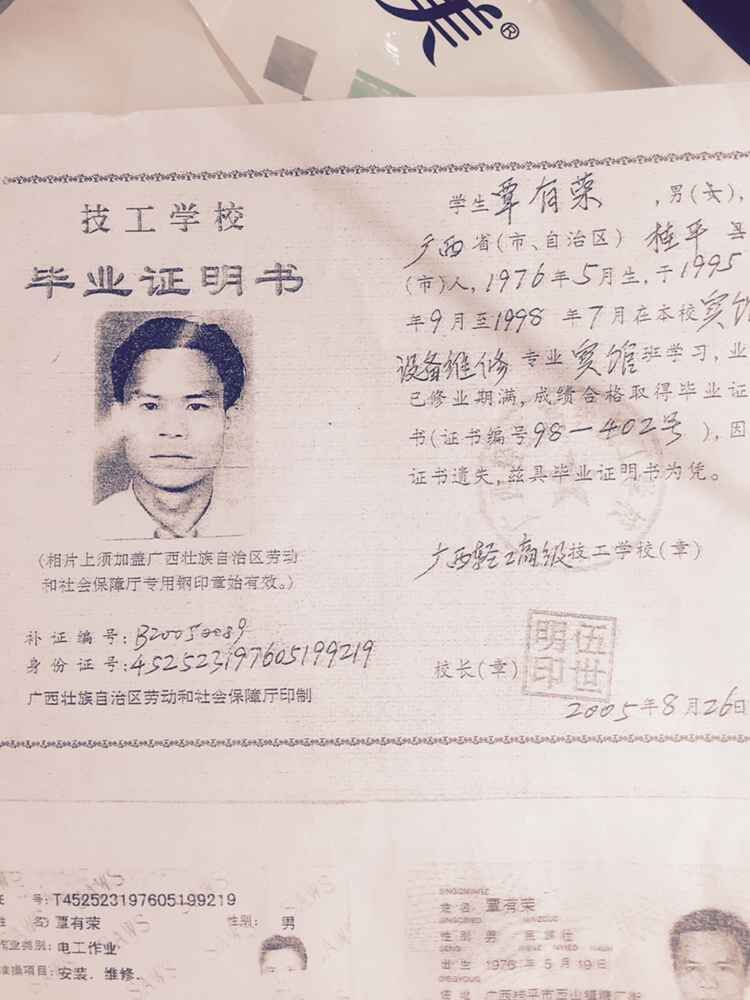 美®
技工学校
毕业证明书
(相片上须加盖广西壮族自治区劳动
和社会保障厅专用钢印章始有效。)
补证编号:B20050089
身份证号:452523197605199219
广西壮族自治区劳动和社会保障厅印制
学生覃有荣 ,男(女),
广西省(市、自治区) 桂平县
(市)人,1976年5月生,于1995
年9月至1998年7月在本校宾馆
设备维修专业宾馆班学习,业
已修业期满,成绩合格取得毕业证
书(证书编号98-402号),因
证书遗失,兹具毕业证明书为凭。
广西轻工高级技工学校(章)
校长(章)
伍世明印
2005年8月26日
号:T452523197605199219
名:覃有荣 性别: 男
作业类别:电工作业
准操项目:安装、维修、
姓名 覃有荣
性别 男 民族 壮
出生 1976年5月19日